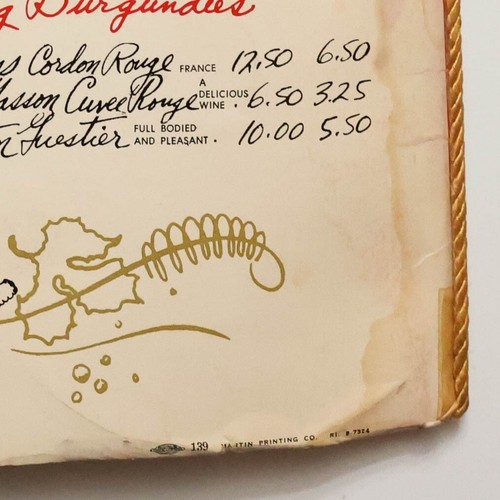 Burgundies
Cordon Rouge FRANCE 12.50 6.50
asson Cuvee Rouge A DELICIOUS WINE . 6.50 3.25
Guestier FULL BODIED AND PLEASANT . 10.00 5.50
139 MARTIN PRINTING CO. RI. 8.7324